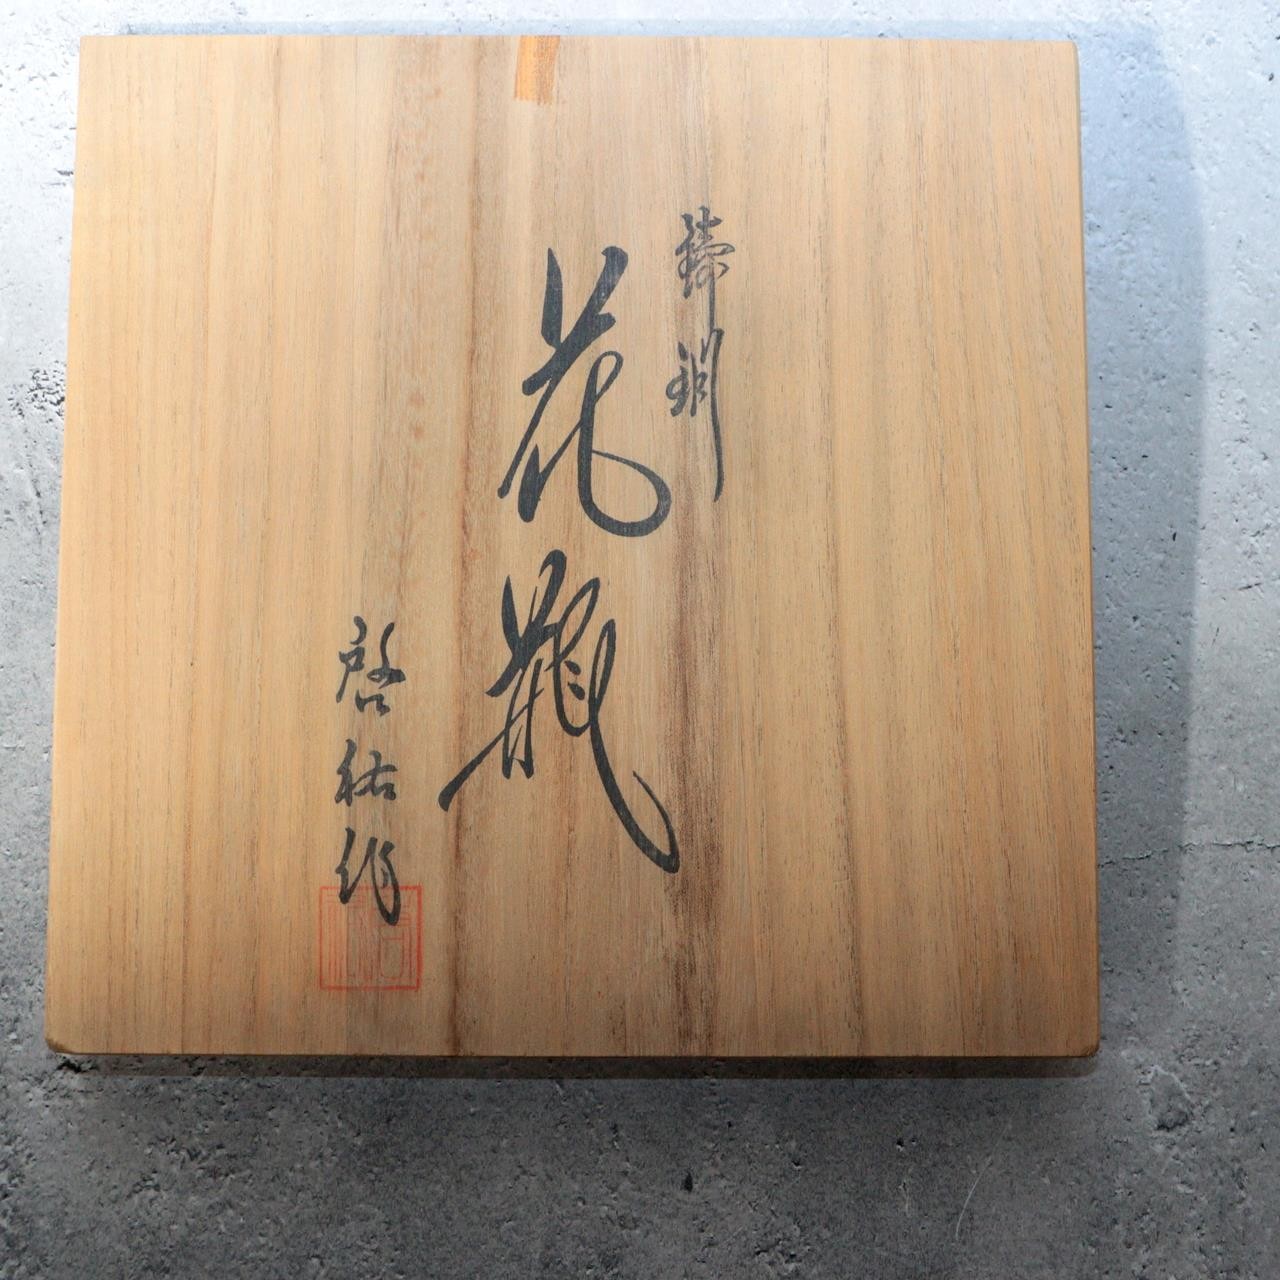 鋳銅
花瓶
啓祐作